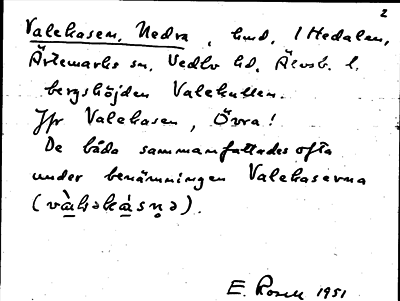 2
Valekasen, Nedra, hmd, i Hedalen,
Ärtemarks sn, Vedbo hd, Älvsb. l.
bergshöjden Valekullen.
Jfr Valekasen, Övra!
De båda sammanfattades ofta
under benämningen Valekaserna
(và̱həká̱sṇə).
E. Rosell 1951